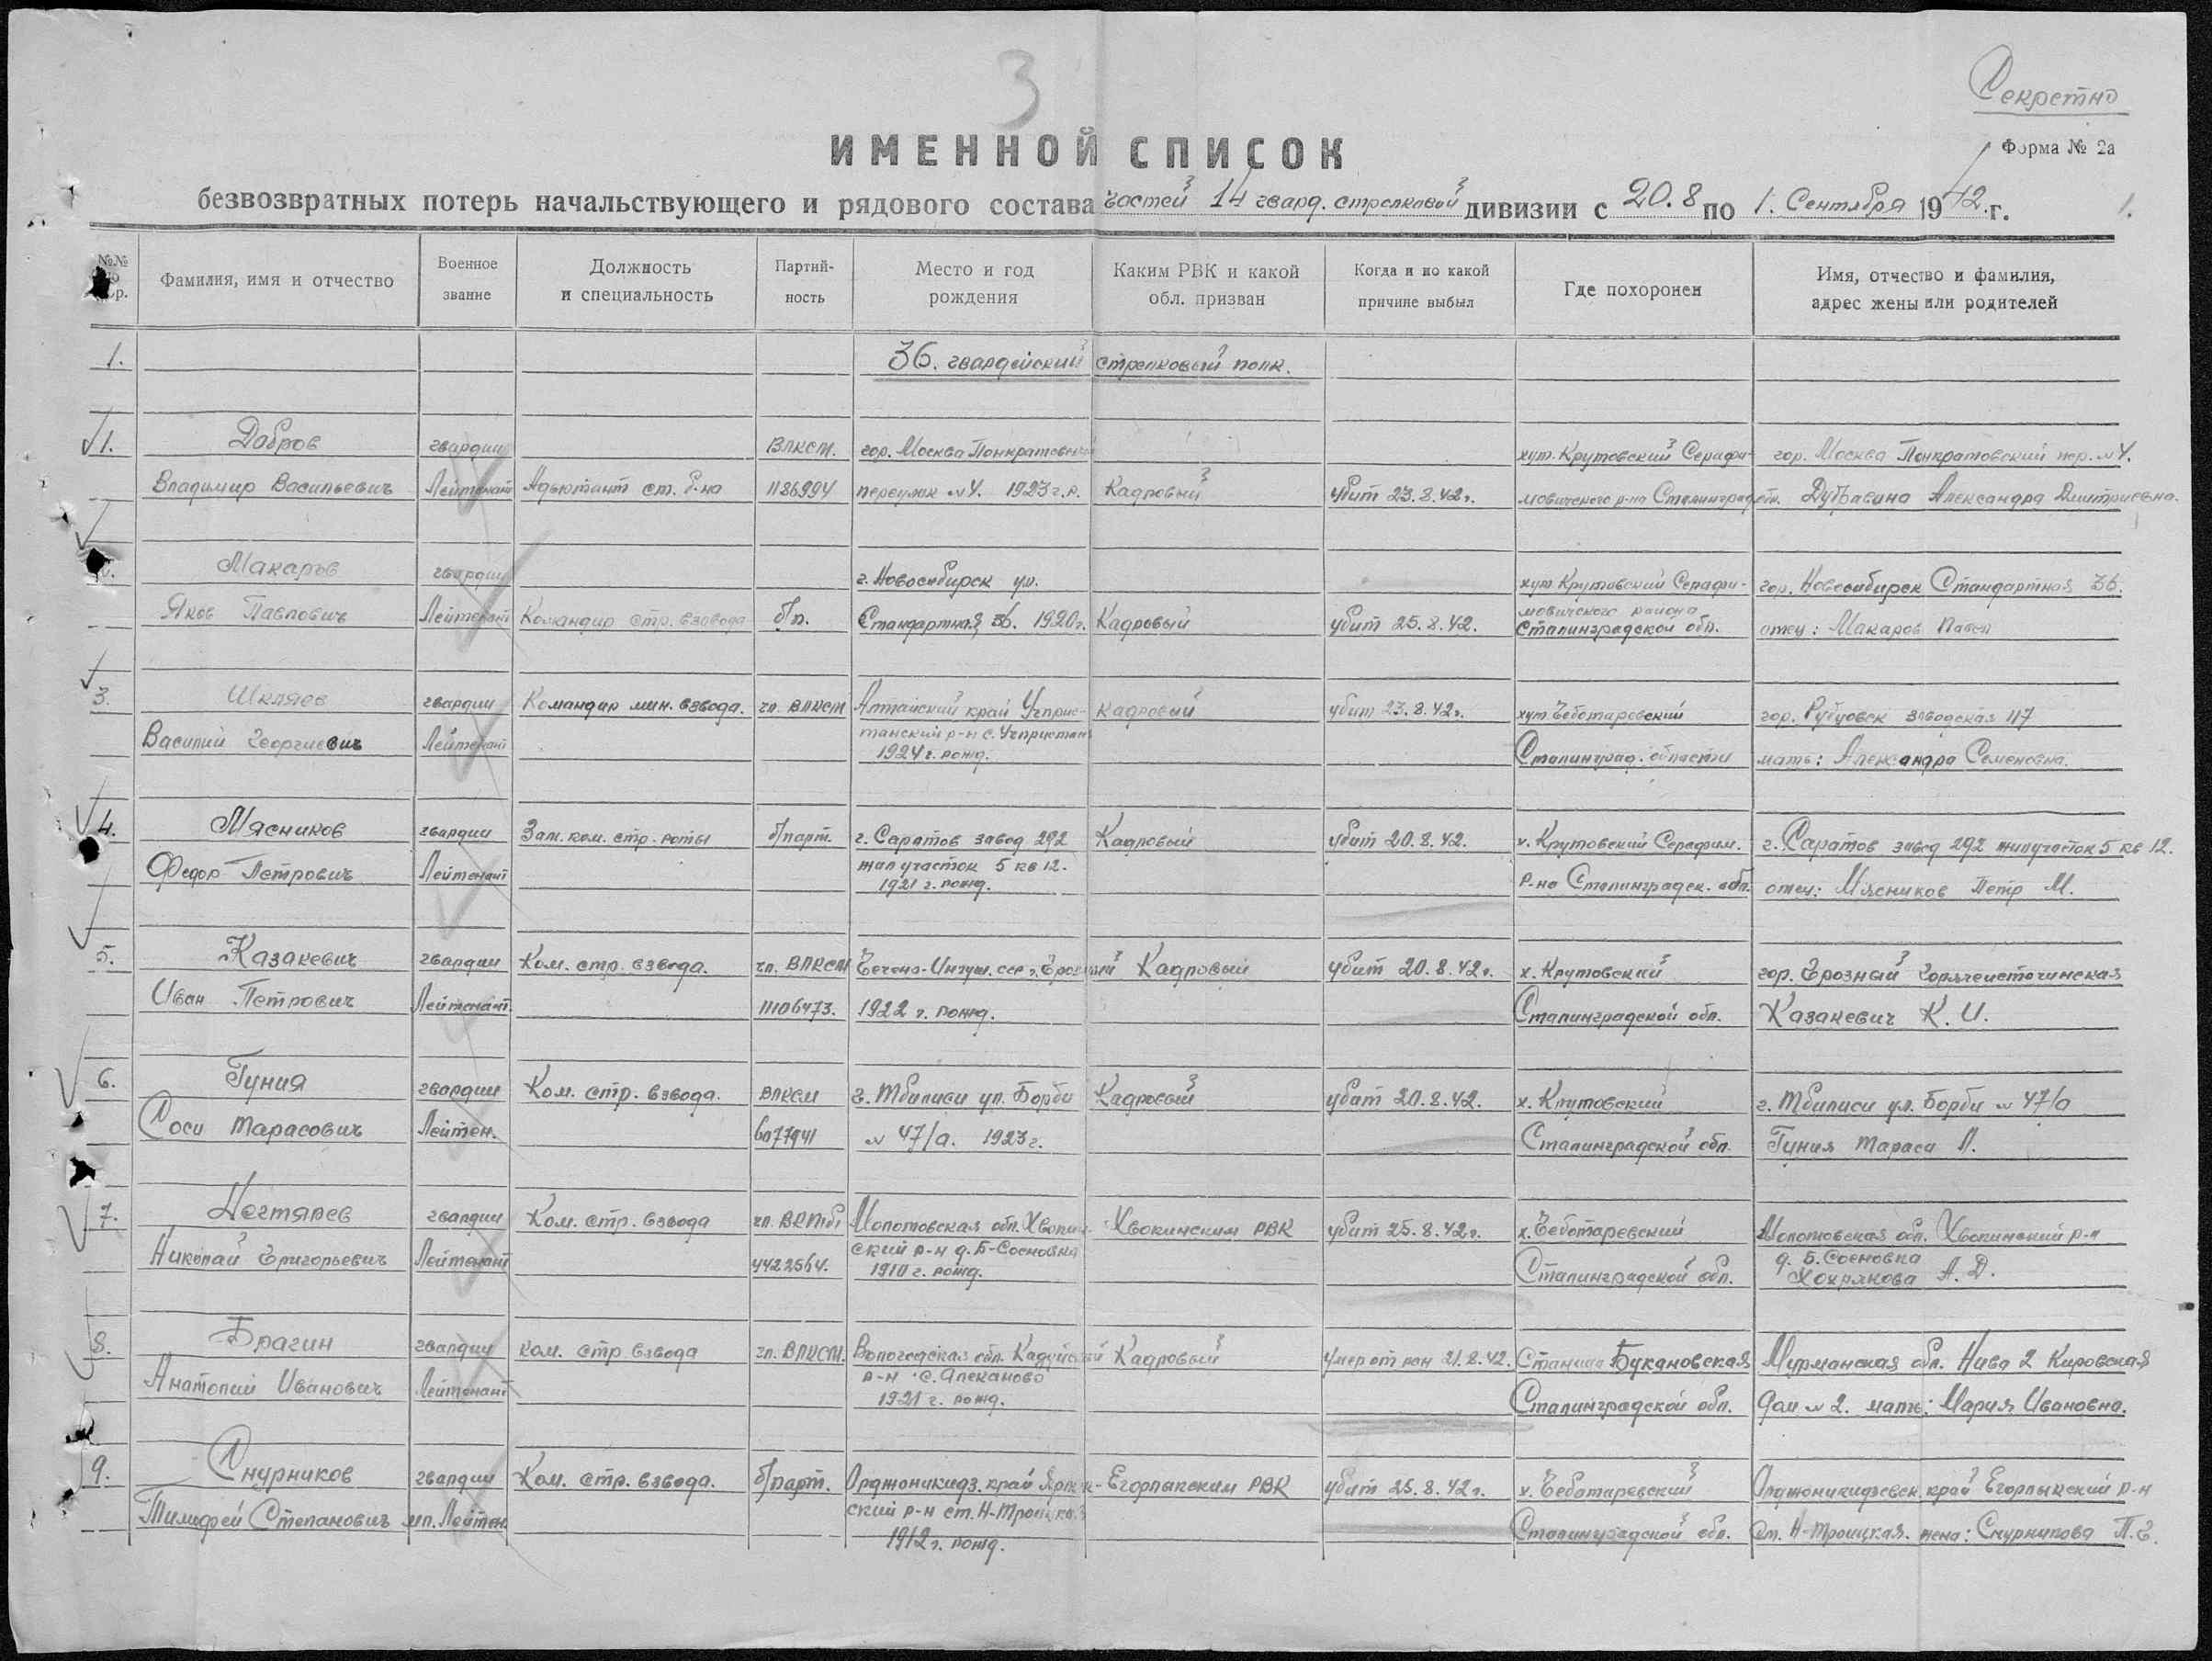 3
Секретно
ИМЕННОЙ СПИСОК
Форма № 2а
безвозвратных потерь начальствующего и рядового состава частей 14 гвард. стрелковой дивизии с 20.8 по 1. Сентября 1942.г.
1.
№№ Фамилия, имя и отчество Военное звание Должность и специальность Партийность Место и год рождения Каким РВК и какой обл. призван Когда и по какой причине выбыл Где похоронен Имя, отчество и фамилия, адрес жены или родителей
1. 36. гвардейский стрелковый полк.
1. Добров гвардии ВЛКСМ. гор. Москва Понкратовский хут. Крутовский Серафи- гор. Москва Понкратовский пер. №4.
Владимир Васильевич Лейтенант Адъютант ст. б-на 1186994 переулок №4. 1923 г.р. Кадровый убит 23.8.42г. мовичского р-на Сталинград. обл. Дубравина Александра Дмитриевна.
Макаров гвардии г. Новосибирск ул. хут. Крутовский Серафи- гор. Новосибирск Стандартная 36.
Яков Павлович Лейтенант Командир стр. взвода б/п. Стандартная 36. 1920г. Кадровый убит 25.8.42. мовичского района Сталинградской обл. отец: Макаров Павел
3. Шкляев гвардии Командир мин. взвода. чл. ВЛКСМ Алтайский край Учприс- кадровый убит 23.8.42г. хут. Чеботаревский гор. Рубцовск заводская 117
Василий Георгиевич Лейтенант танский р-н с. Учпристань 1924 г. рожд. Сталинград. области мать: Александра Семеновна.
4. Мясников гвардии Зам. ком. стр. роты б/парт. г. Саратов завод 292 Кадровый убит 20.8.42. х. Крутовский Серафим. г. Саратов завод 292 жилучасток 5 кв 12.
Федор Петрович Лейтенант жил участок 5 кв 12. 1921 г. рожд. р-на Сталинградск. обл. отец: Мясников Петр М.
5. Казакевич гвардии Ком. стр. взвода. чл. ВЛКСМ Чечено-Ингуш. сср г. Грозный Кадровый убит 20.8.42г. х. Крутовский гор. Грозный Горячеисточинская
Иван Петрович Лейтенант. 11106473. 1922 г. рожд. Сталинградской обл. Казакевич К. И.
6. Гуния гвардии Ком. стр. взвода. ВЛКСМ г. Тбилиси ул. Борби Кадровый убит 20.8.42. х. Крутовский г. Тбилиси ул. Борби № 47/а
Соси Тарасович Лейтен. 6077941 № 47/а. 1923г. Сталинградской обл. Гуния Тараси Л.
7. Дегтярев гвардии Ком. стр. взвода чл. ВКП/б/ Молотовская обл. Хвокин- Хвокинским РВК убит 25.8.42г. х. Чеботаревский Молотовская обл. Хвокинский р-н
Николай Григорьевич Лейтенант 4422564. ский р-н д. Б-Сосновка 1910 г. рожд. Сталинградской обл. д. Б. Сосновка Хохрякова А. Д.
8. Брагин гвардии ком. стр взвода чл. ВЛКСМ. Вологодская обл. Кадуйский Кадровый умер от ран 21.8.42. Станица Букановская Мурманская обл. Нива 2 Кировская
Анатолий Иванович Лейтенант р-н с. Алеканово 1921 г. рожд. Сталинградской обл. дом № 2. мать: Мария Ивановна.
9. Снурников гвардии Ком. стр. взвода. б/парт. Орджоникидз. край Егорлык- Егорлыкским РВК убит 25.8.42г. х. Чеботаревский Орджоникидзевск. край Егорлыкский р-н
Тимофей Степанович мл. Лейтен. ский р-н ст. Н-Троицкая 1912 г. рожд. Сталинградской обл. ст. Н-Троицкая. жена: Снурникова П. Е.